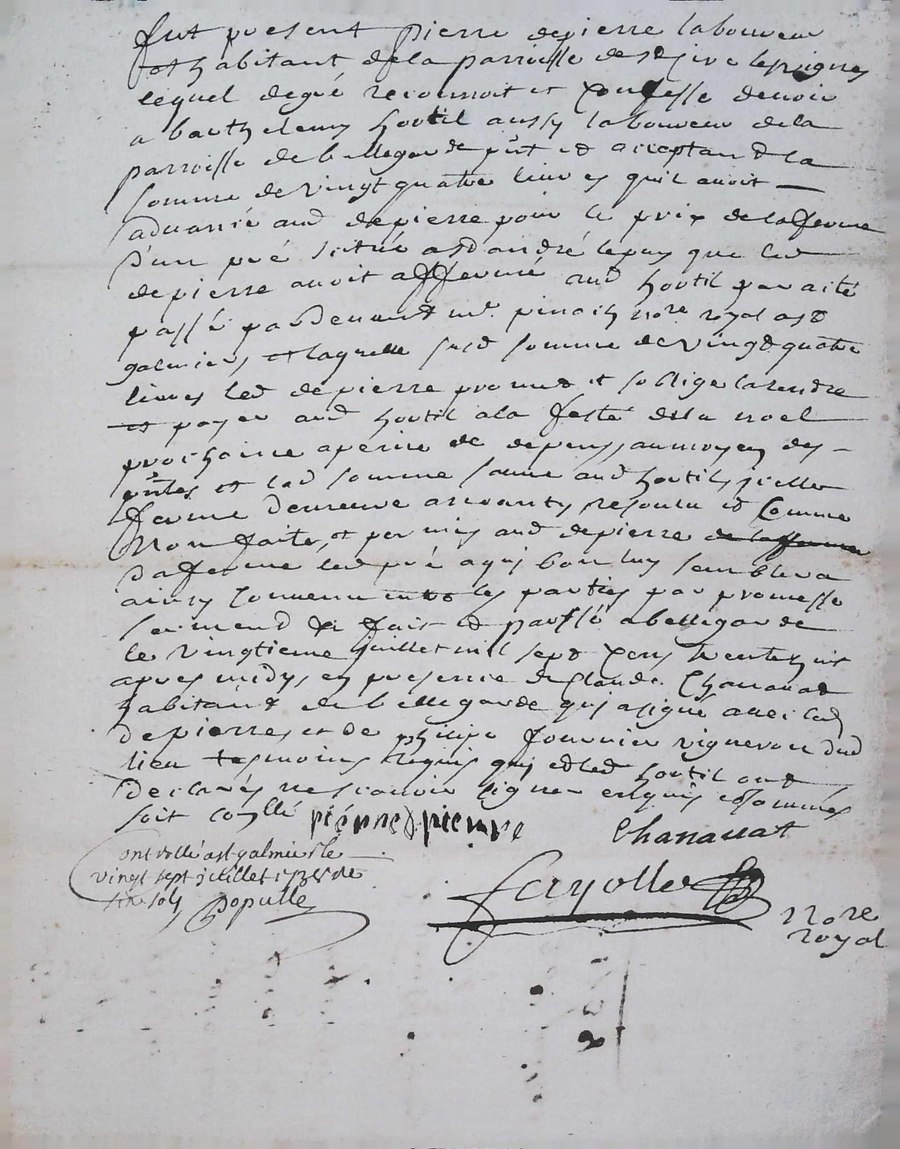 fut present pierre depierre laboureur
habitant de la parroisse de st cire les vignes
lequel degré reconnoit et confesse devoir
a barthelemy houtil aussy laboureur de la
parroisse de bellegarde pnt et acceptand la
somme de vingt quatre livres quil avoit
advansé aud depierre pour le prix de la fferme
d'un pré scitué a st andré le puy que led
depierre avoit affermé aud houtil par acte
passé pardevant me pinail nore royal a st
galmier, laquelle susd somme de vingt quatre
livres led depierre promet et soblige la rendre
et payer aud houtil a la feste de la noel
prochaine a peine de depens, au moyen des
pntes et lad somme payée aud houtil, icelle
fferme demeure resolu et comme
non faite, et permis aud depierre de la fferme
daffermer led pré a qui bon luy semblera
ainsy convenu entre les parties par promesse
serment &a fait et passé a bellegarde
le vingtieme juillet mil sept cens trente huit
apres midy, en presence de Claude Chanavat
habitant de bellegarde qui a signé avec led
depierre, et de philipe fournier vigneron dud
lieu tesmoins requis qui et led houtil ont
declarés ne scavoir signer enquis et sommés
soit conllé pierre depierre Chanavat
Controllé a st galmier le
vingt sept juillet 1738 de
six sols Populle
fayolle
nore
royal